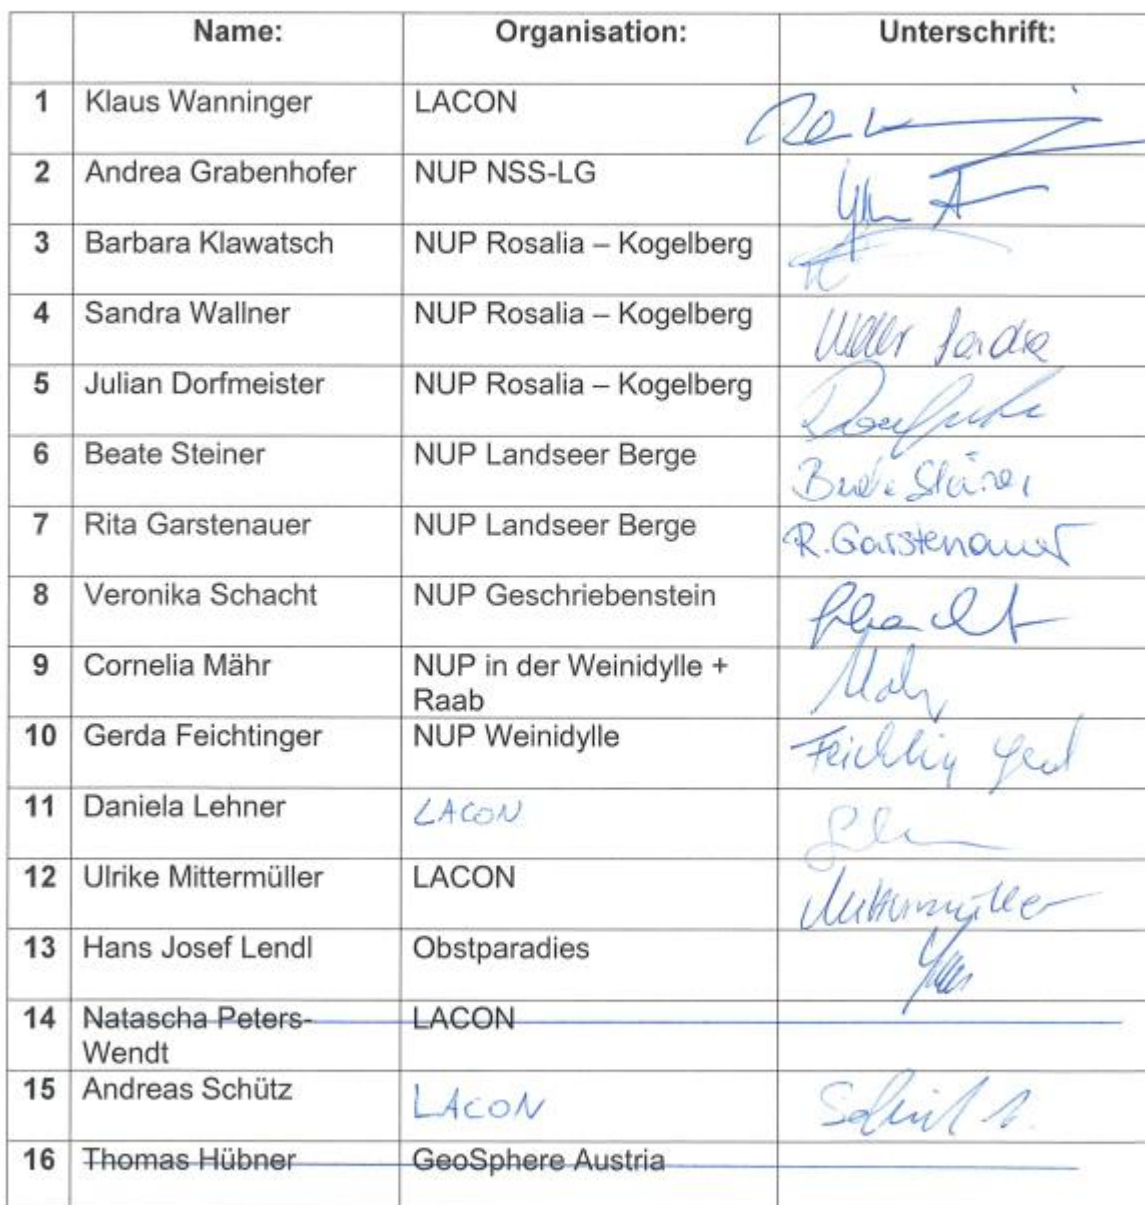 Name: Organisation: Unterschrift:
1 Klaus Wanninger LACON
2 Andrea Grabenhofer NUP NSS-LG
3 Barbara Klawatsch NUP Rosalia – Kogelberg
4 Sandra Wallner NUP Rosalia – Kogelberg
5 Julian Dorfmeister NUP Rosalia – Kogelberg
6 Beate Steiner NUP Landseer Berge
7 Rita Garstenauer NUP Landseer Berge R. Garstenauer
8 Veronika Schacht NUP Geschriebenstein
9 Cornelia Mähr NUP in der Weinidylle +
Raab
10 Gerda Feichtinger NUP Weinidylle
11 Daniela Lehner LACON
12 Ulrike Mittermüller LACON Mittermüller
13 Hans Josef Lendl Obstparadies
14 Natascha Peters- LACON
Wendt
15 Andreas Schütz LACON
16 Thomas Hübner GeoSphere Austria